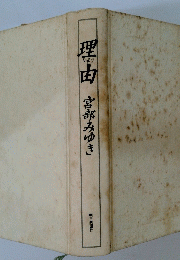 理由
宮部みゆき